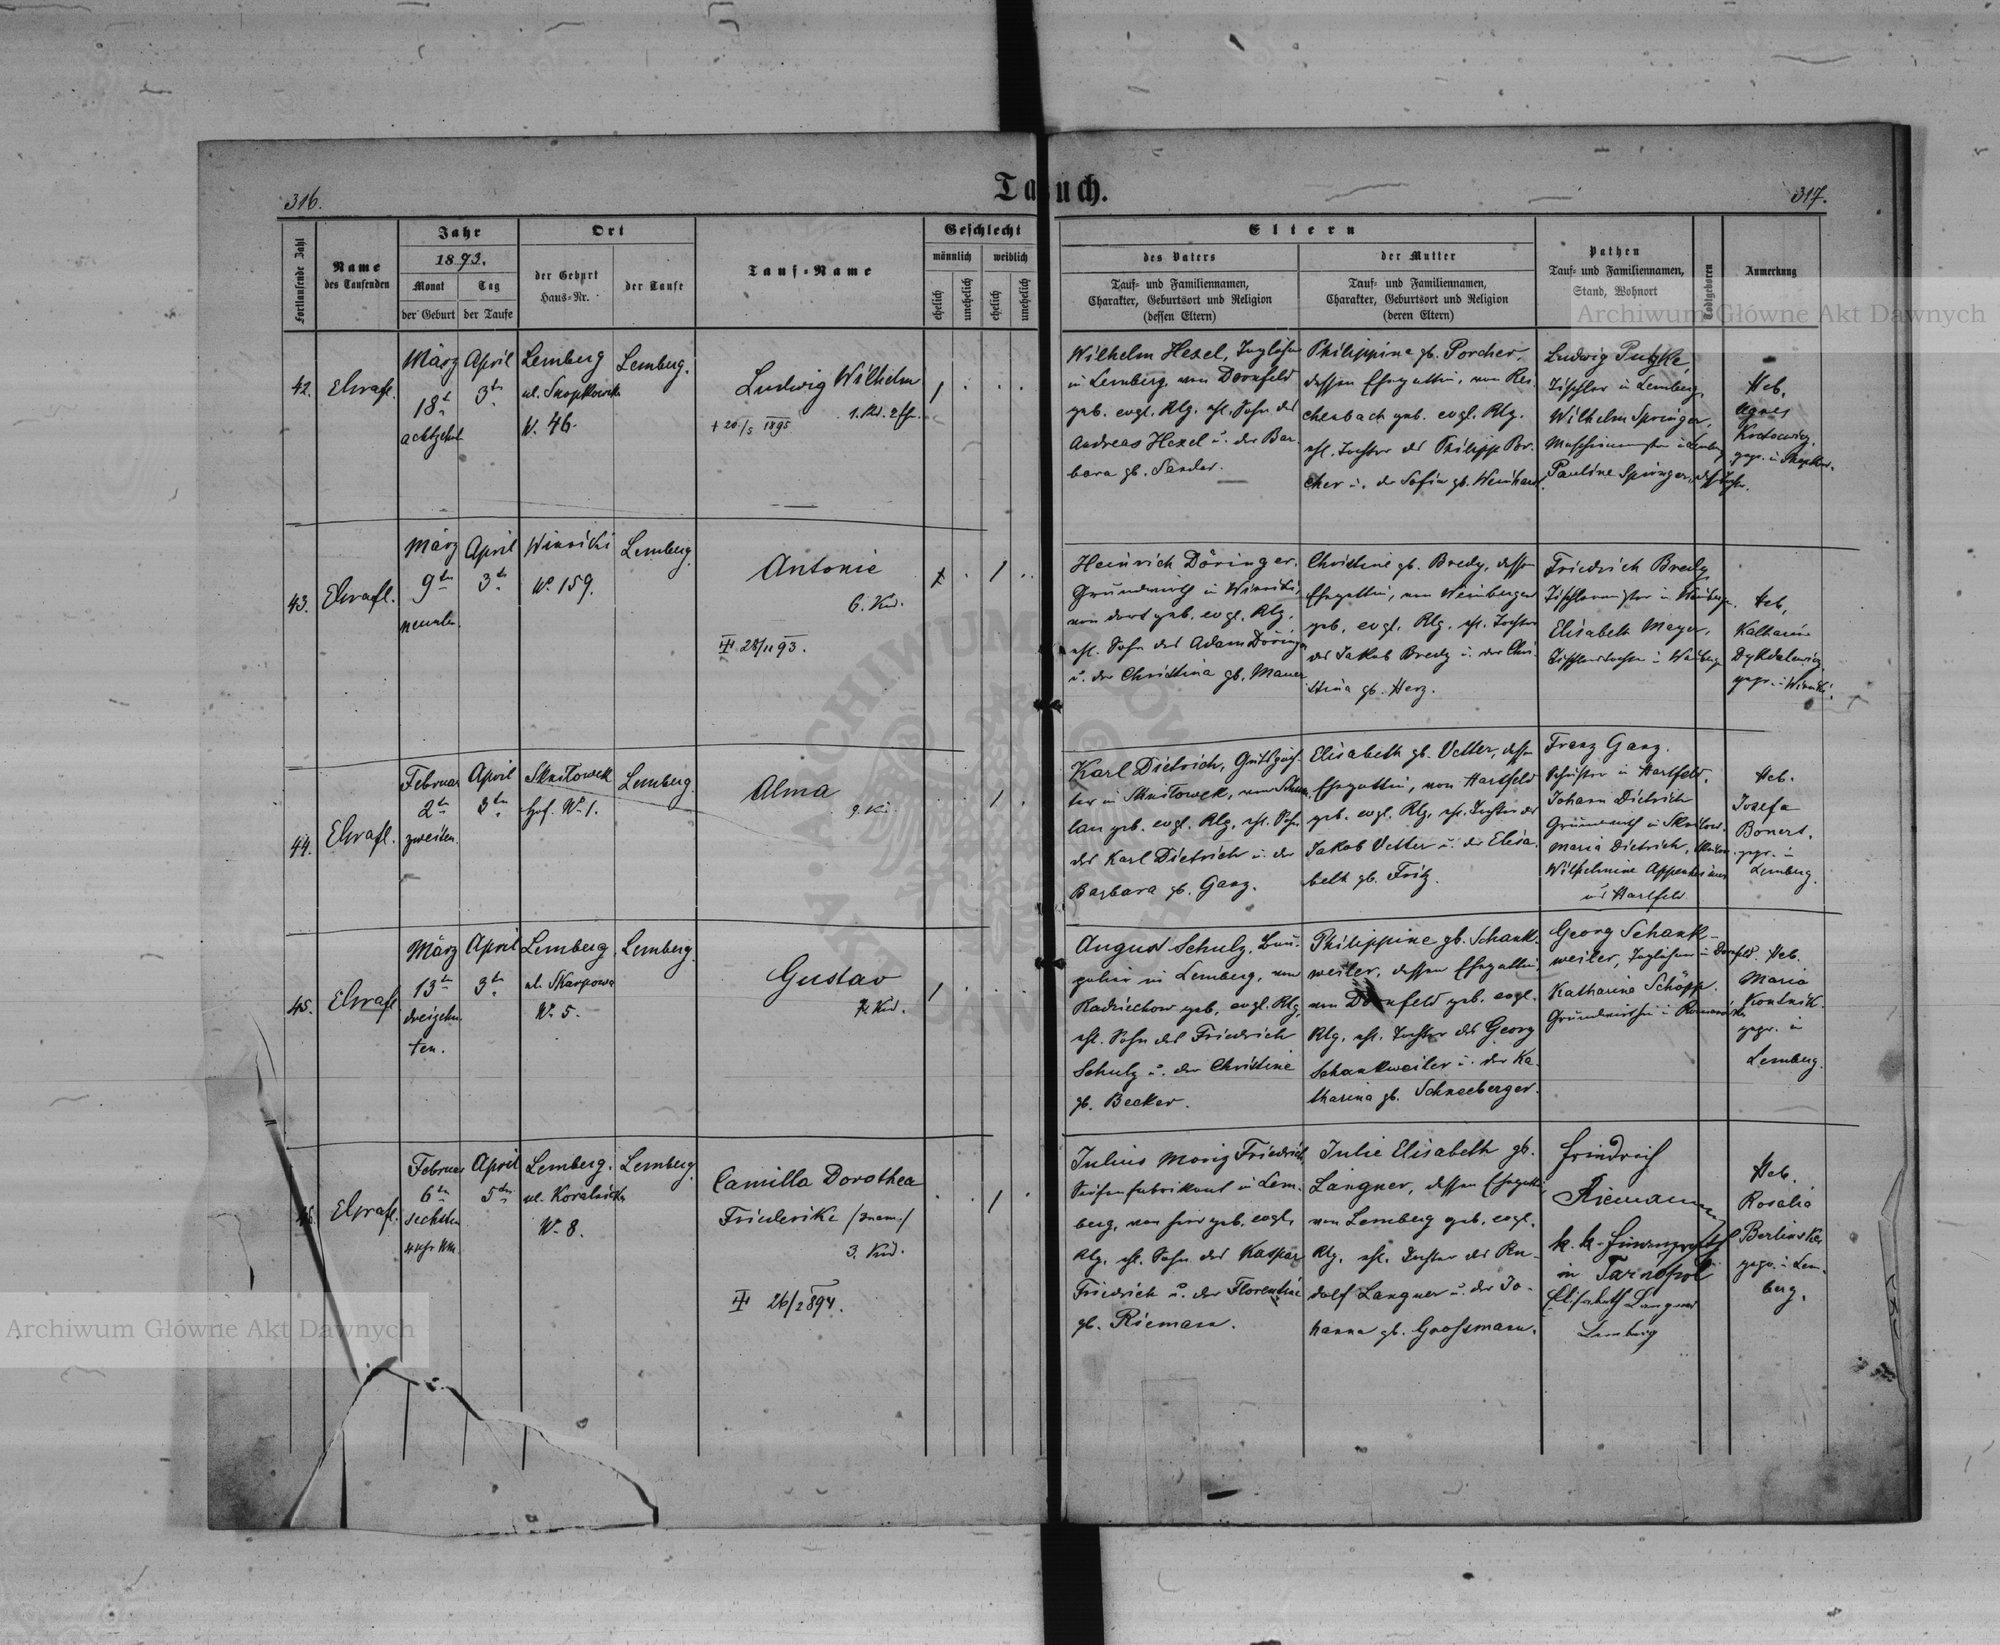 316.
Taufbuch.
317.
Fortlaufende Zahl
Name
des Taufenden
Jahr
1893.
Monat
der Geburt
Tag
der Taufe
Ort
der Geburt
Haus-Nr.
der Taufe
Tauf-Name
Geschlecht
männlich
weiblich
ehelich
unehelich
ehelich
unehelich
Eltern
des Vaters
Tauf- und Familiennamen,
Charakter, Geburtsort und Religion
(dessen Eltern)
der Mutter
Tauf- und Familiennamen,
Charakter, Geburtsort und Religion
(deren Eltern)
Pathen
Tauf- und Familiennamen,
Stand, Wohnort
Todtgeboren
Anmerkung
42.
März
18t
achtzehnt
April
3tn
Lemberg
N. 46.
Lemberg.
Ludwig Wilhelm
1. Kd. 2 Eh.
+ 20/5 1895
Wilhelm Hexel, Taglöhner
in Lemberg, von Dornfeld
geb. evgl. Rlg. ehl. Sohn des
Andreas Hexel u. der Bar-
bara gb. Sander.
Philippine gb. Porcher,
dessen Ehegattin, von Rei-
chenbach geb. evgl. Rlg.
ehl. Tochter des Philipp Por-
cher u. der Sofia gb. Weinhard.
Ludwig Putzke,
Tischler in Lemberg,
Wilhelm Springer,
Pauline Springer,
Heb.
Agnes
43.
März
9tn
neunten
April
3tn
Winniki
No 159.
Lemberg.
Antonie
6. Kid.
28/11 93.
Heinrich Döringer,
Grundwirth in Winniki,
von dort geb. evgl. Rlg.
ehl. Sohn des Adam Döringer
u. der Christina gb. Mauer
Christine gb. Bredy, dessen
Ehegattin, von Weinbergen
geb. evgl. Rlg. ehl. Tochter
des Jakob Bredy u. der Chri-
stina gb. Herz.
Friedrich Bredy
Elisabeth Mayer,
Heb.
Katharina
Dykdalewicz
gepr. in Winniki.
44.
Februar
2tn
zweiten
April
3tn
Sknilowek
Hof. No 1.
Lemberg.
Alma
9. Ki
Karl Dietrich, Gutspäch-
ter in Sknilowek, von
geb. evgl. Rlg. ehl. Sohn
des Karl Dietrich u. der
Barbara gb. Ganz.
Elisabeth gb. Vetter, dessen
Ehegattin, von Hartfeld
geb. evgl. Rlg. ehl. Tochter des
Jakob Vetter u. der Elisa-
beth gb. Fritz.
Franz Ganz.
Schuster in Hartfeld.
Johann Dietrich
Grundwirth in
Maria Dietrich,
Wilhelmine
Hartfeld
Heb.
Josefa
Bonert.
gepr. in
Lemberg.
45.
März
13tn
dreizehn-
ten.
April
3tn
Lemberg,
ul. Skarpowa
No 5.
Lemberg.
Gustav
Kid.
August Schulz,
in Lemberg, von
Radziechow geb. evgl. Rlg.
ehl. Sohn des Friedrich
Schulz u. der Christine
gb. Becker.
Philippine gb. Schank-
weiler, dessen Ehegattin
von Dornfeld geb. evgl.
Rlg. ehl. Tochter des Georg
Schankweiler u. der Ka-
tharina gb. Schneeberger.
Georg Schank-
weiler, Taglöhner in Dornfeld.
Katharina Schöpp.
Heb.
Maria
gepr. in
Lemberg.
Februar
6tn
sechsten
April
5tn
Lemberg.
No 8.
Lemberg
Camilla Dorothea
Friederike
3. Kid.
26/2 894.
Julius Moriz Friedrich,
Seifenfabrikant in Lem-
berg, von hier geb. evgl.
Rlg. ehl. Sohn des Kaspar
Friedrich u. der Florentine
gb. Riemann.
Julie Elisabeth gb.
Langner, dessen Ehegattin
von Lemberg geb. evgl.
Rlg. ehl. Tochter des Ru-
dolf Langner u. der Jo-
hanna gb. Grossmann.
Friedrich
Riemann
k. k.
in Tarnopol
Elisabeth Langner
Lemberg
Heb.
Rosalia
Berlinska
gepr. in Lem-
berg.
Archiwum Główne Akt Dawnych
Archiwum Główne Akt Dawnych